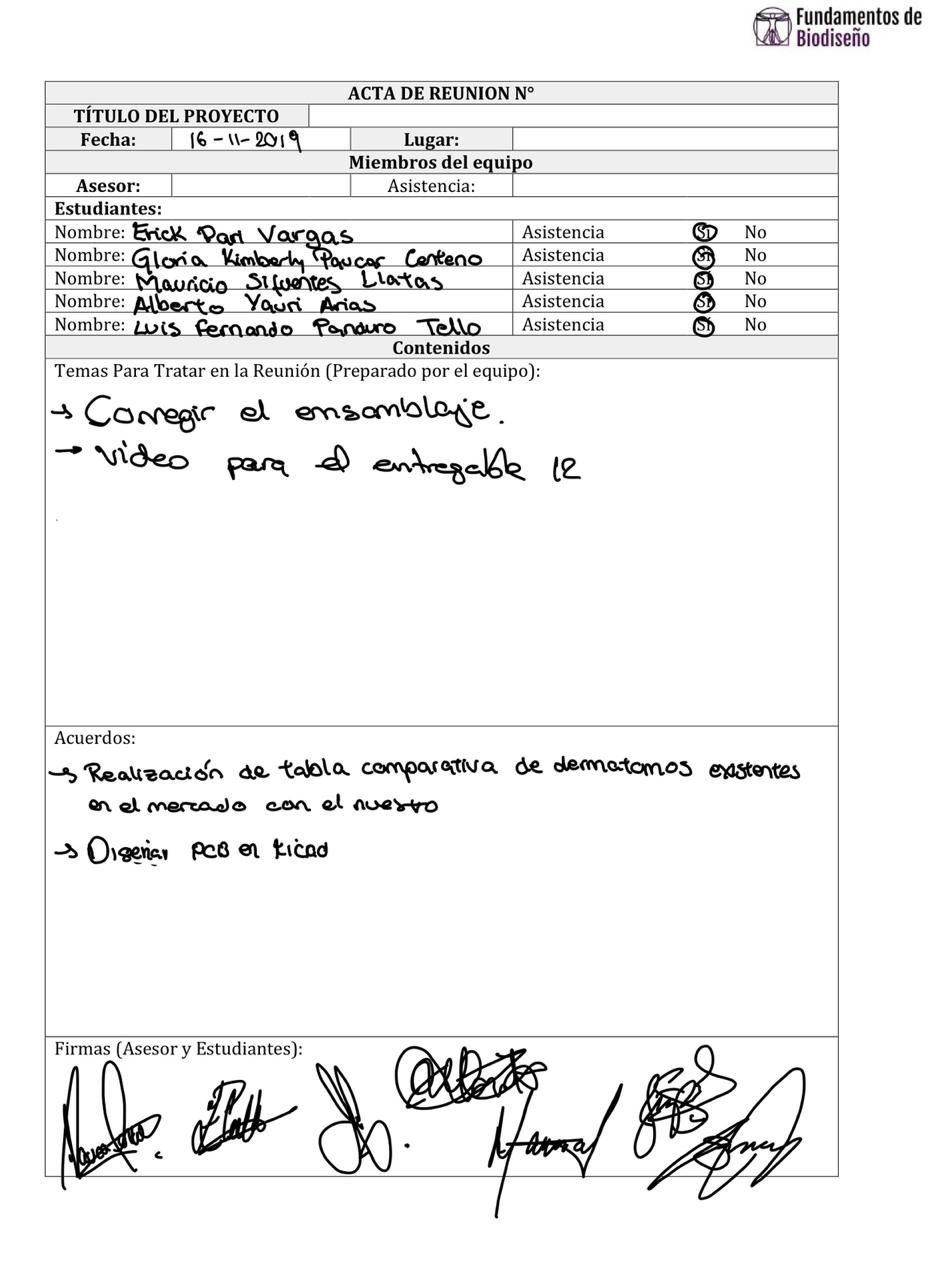 Fundamentos de
Biodiseño
ACTA DE REUNION N°
TÍTULO DEL PROYECTO
Fecha: 16-11-2019 Lugar:
Miembros del equipo
Asesor: Asistencia:
Estudiantes:
Nombre: Erick Pari Vargas Asistencia Si No
Nombre: Gloria Kimberly Paucar Centeno Asistencia Si No
Nombre: Mauricio Sifuentes Llatas Asistencia Si No
Nombre: Alberto Yauri Arias Asistencia Si No
Nombre: Luis Fernando Panduro Tello Asistencia Si No
Contenidos
Temas Para Tratar en la Reunión (Preparado por el equipo):
→ Corregir el ensamblaje.
→ Video para el entregable 12
Acuerdos:
→ Realización de tabla comparativa de dermatomos existentes
en el mercado con el nuestro
→ Diseñar PCB en kicad
Firmas (Asesor y Estudiantes):